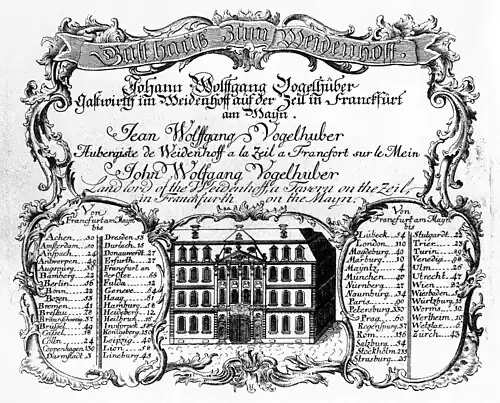 Gasthauß Zum Weidenhoff.
Johann Wolffgang Vogelhüber
Gastwirth im Weidenhoff auf der Zeil in Franckfurt
am Mayn.
Jean Wolffgang Vogelhuber
Aubergiste de Weidenhoff a la Zeil a Francfort sur le Mein
John Wolfgang Vogelhuber
Landlord of the Weidenhoff, a Tavern on the Zeil,
in Franckfurth on the Mayn.
Von
Franckfurt am Mayn
bis
Achen
Amsterdam
Anspach 24
Antwerpen
Augspurg 36
Bamberg 22
Berlin 56
Bonn
Basel
Bremen
Breslau
Braunschweig
Brüssel 49
Cassel
Cölln 24
Coppenhagen
Darmstadt 3
Dresden
Durlach 18
Donauwerth 27
Erfurth
Franckfurt an
der Oder
Fulda 12
Geneve 64
Haag 61
Hamburg
Heidelberg
Heilbrun
Insbruck
Königsberg
Leipzig 40
Lion
Lineburg 43
Von
Franckfurt am Mayn
bis
Lübeck 54
London 110
Magdeburg 40
Mayland
Mayntz 4
München
Nürnberg 27
Naumburg 34
Paris 90
Petersburg 330
Prag 60
Regenspurg
Rom
Saltzburg 54
Stockholm
Strasburg
Stuttgard 22
Trier 23
Turin
Venedig
Ulm
Utrecht 47
Wien 92
Wisbaden
Würtzburg 15
Worms
Wertheim 10
Wetzlar 6
Zürch 43